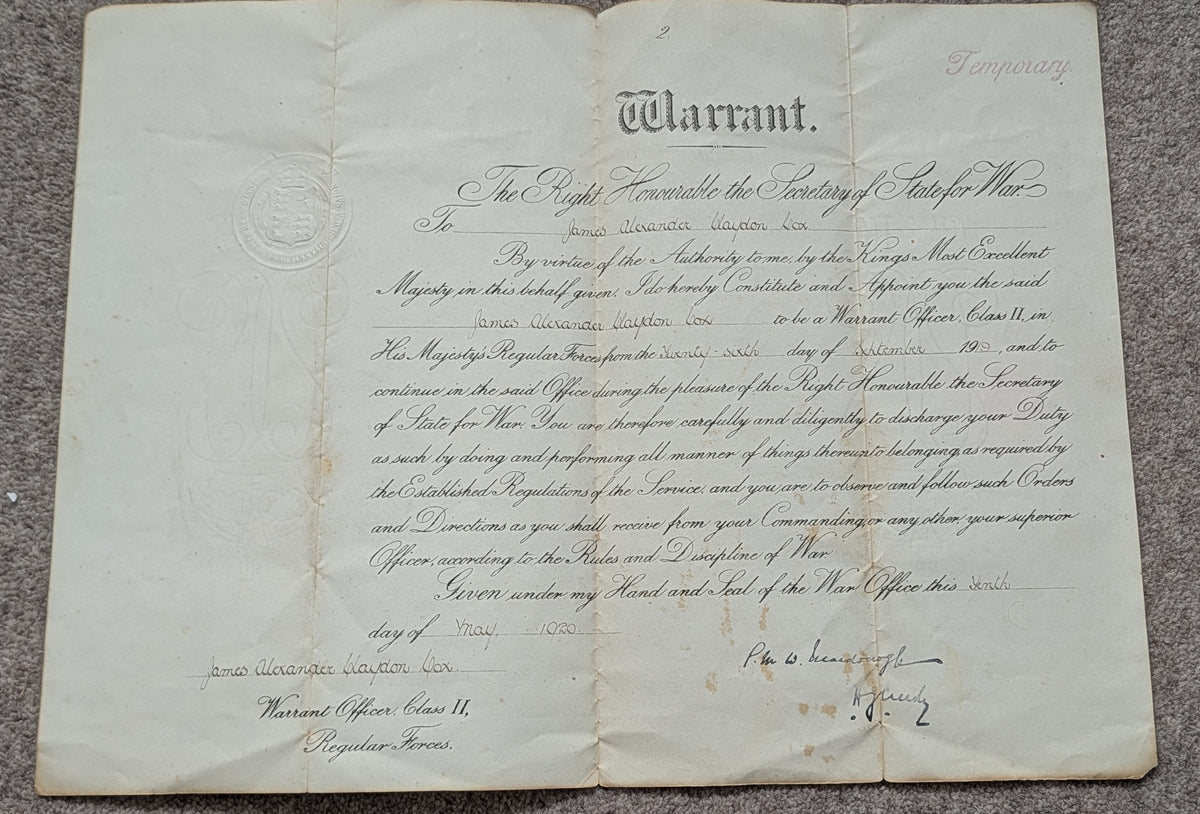 2.
Temporary.
Warrant.
The Right Honourable the Secretary of State for War.
To James Alexander Claydon Cox
By virtue of the Authority to me, by the Kings Most Excellent
Majesty in this behalf given, I do hereby Constitute and Appoint you the said
James Alexander Claydon Cox to be a Warrant Officer, Class II, in
His Majesty's Regular Forces from the Twenty-sixth day of September 19, and to
continue in the said Office during the pleasure of the Right Honourable the Secretary
of State for War. You are therefore carefully and diligently to discharge your Duty
as such by doing and performing all manner of things thereunto belonging, as required by
the Established Regulations of the Service, and you are to observe and follow such Orders
and Directions as you shall receive from your Commanding, or any other your superior
Officer, according to the Rules and Discipline of War
Given under my Hand and Seal of the War Office this Tenth
day of May, 1920.
James Alexander Claydon Cox
P. M. W. Macdonogh
Warrant Officer, Class II,
Regular Forces.